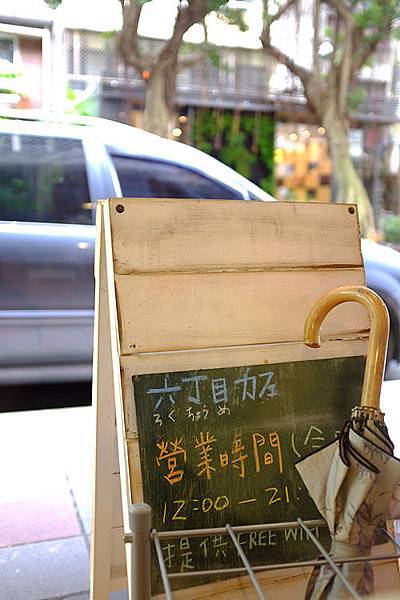 六丁目カフェ
ろくちょうめ
營業時間(
12:00—21:
提供 FREE WI